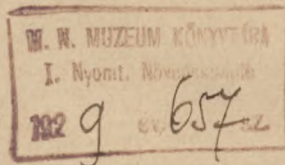 M. N. MUZEUM KÖNYVTÁRA
I. Nyomt. Növedéknapló
192 9 év, 657 sz.